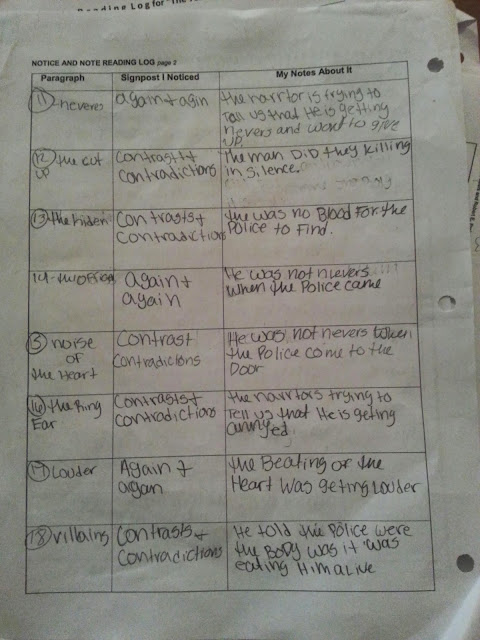 Reading Log for "The
NOTICE AND NOTE READING LOG page 2
Paragraph Signpost I Noticed My Notes About It
11 - neveres again + agin the narrtor is trying to
Tell us that He is getting
nevers and want to give
up
12 the cut
up
Contrast+
contradictions
The man DiD they killing
in silence.
13 the hiden Contrasts+
Contradictions
the was no Blood For the
Police to Find.
14 - the office again +
again
He was not nievers
when the Police came
5 noise
of
the Heart
Contrast
Contradictions
He was not nevers when
the Police come to the
Door
16 the Ring
Ear
Contrasts+
contradictions
the narrtors trying to
Tell us that He is geting
annyed.
17 Louder Again +
argan
the Beating or the
Heart was getting Louder
18 villains Contrasts+
Contradictions
He told the Police were
the BoDy was it was
eating Him alive